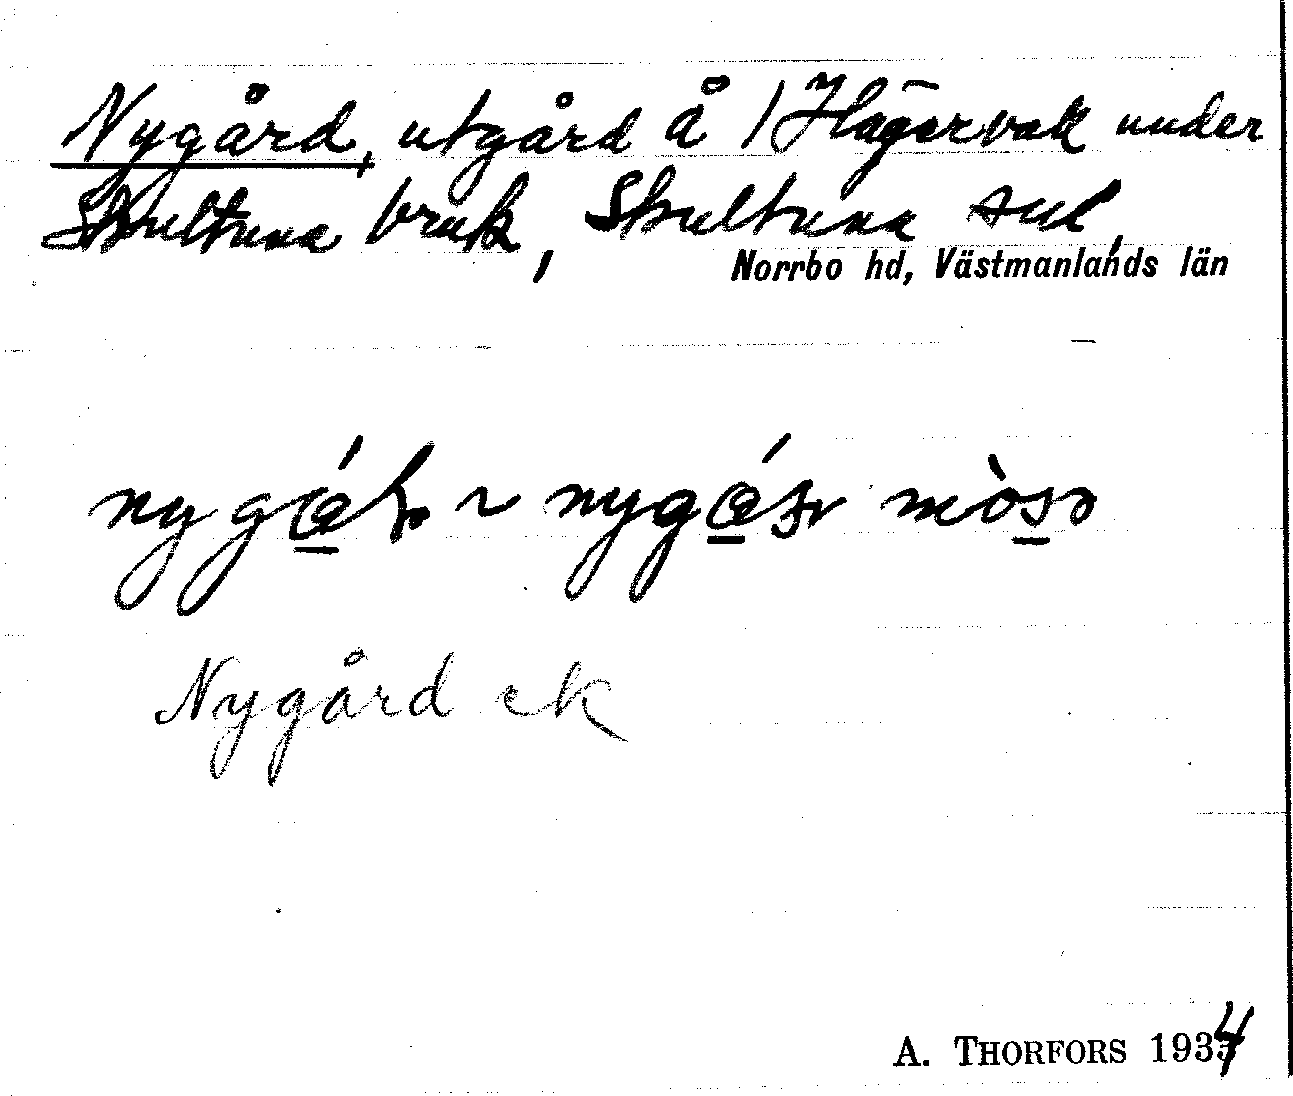 Nygård, utgård å 1 Hagervak under
Skultuna bruk, Skultuna sn,
Norrbo hd, Västmanlands län
Nygård ek
A. THORFORS 1934